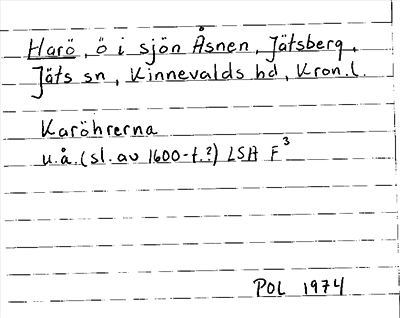 Harö, ö i sjön Åsnen, Jätsberg,
Jäts sn, Kinnevalds hd, Kron.l.
Karöhrerna
u.å. (sl. av 1600-t.?) LSA F³
POL 1974